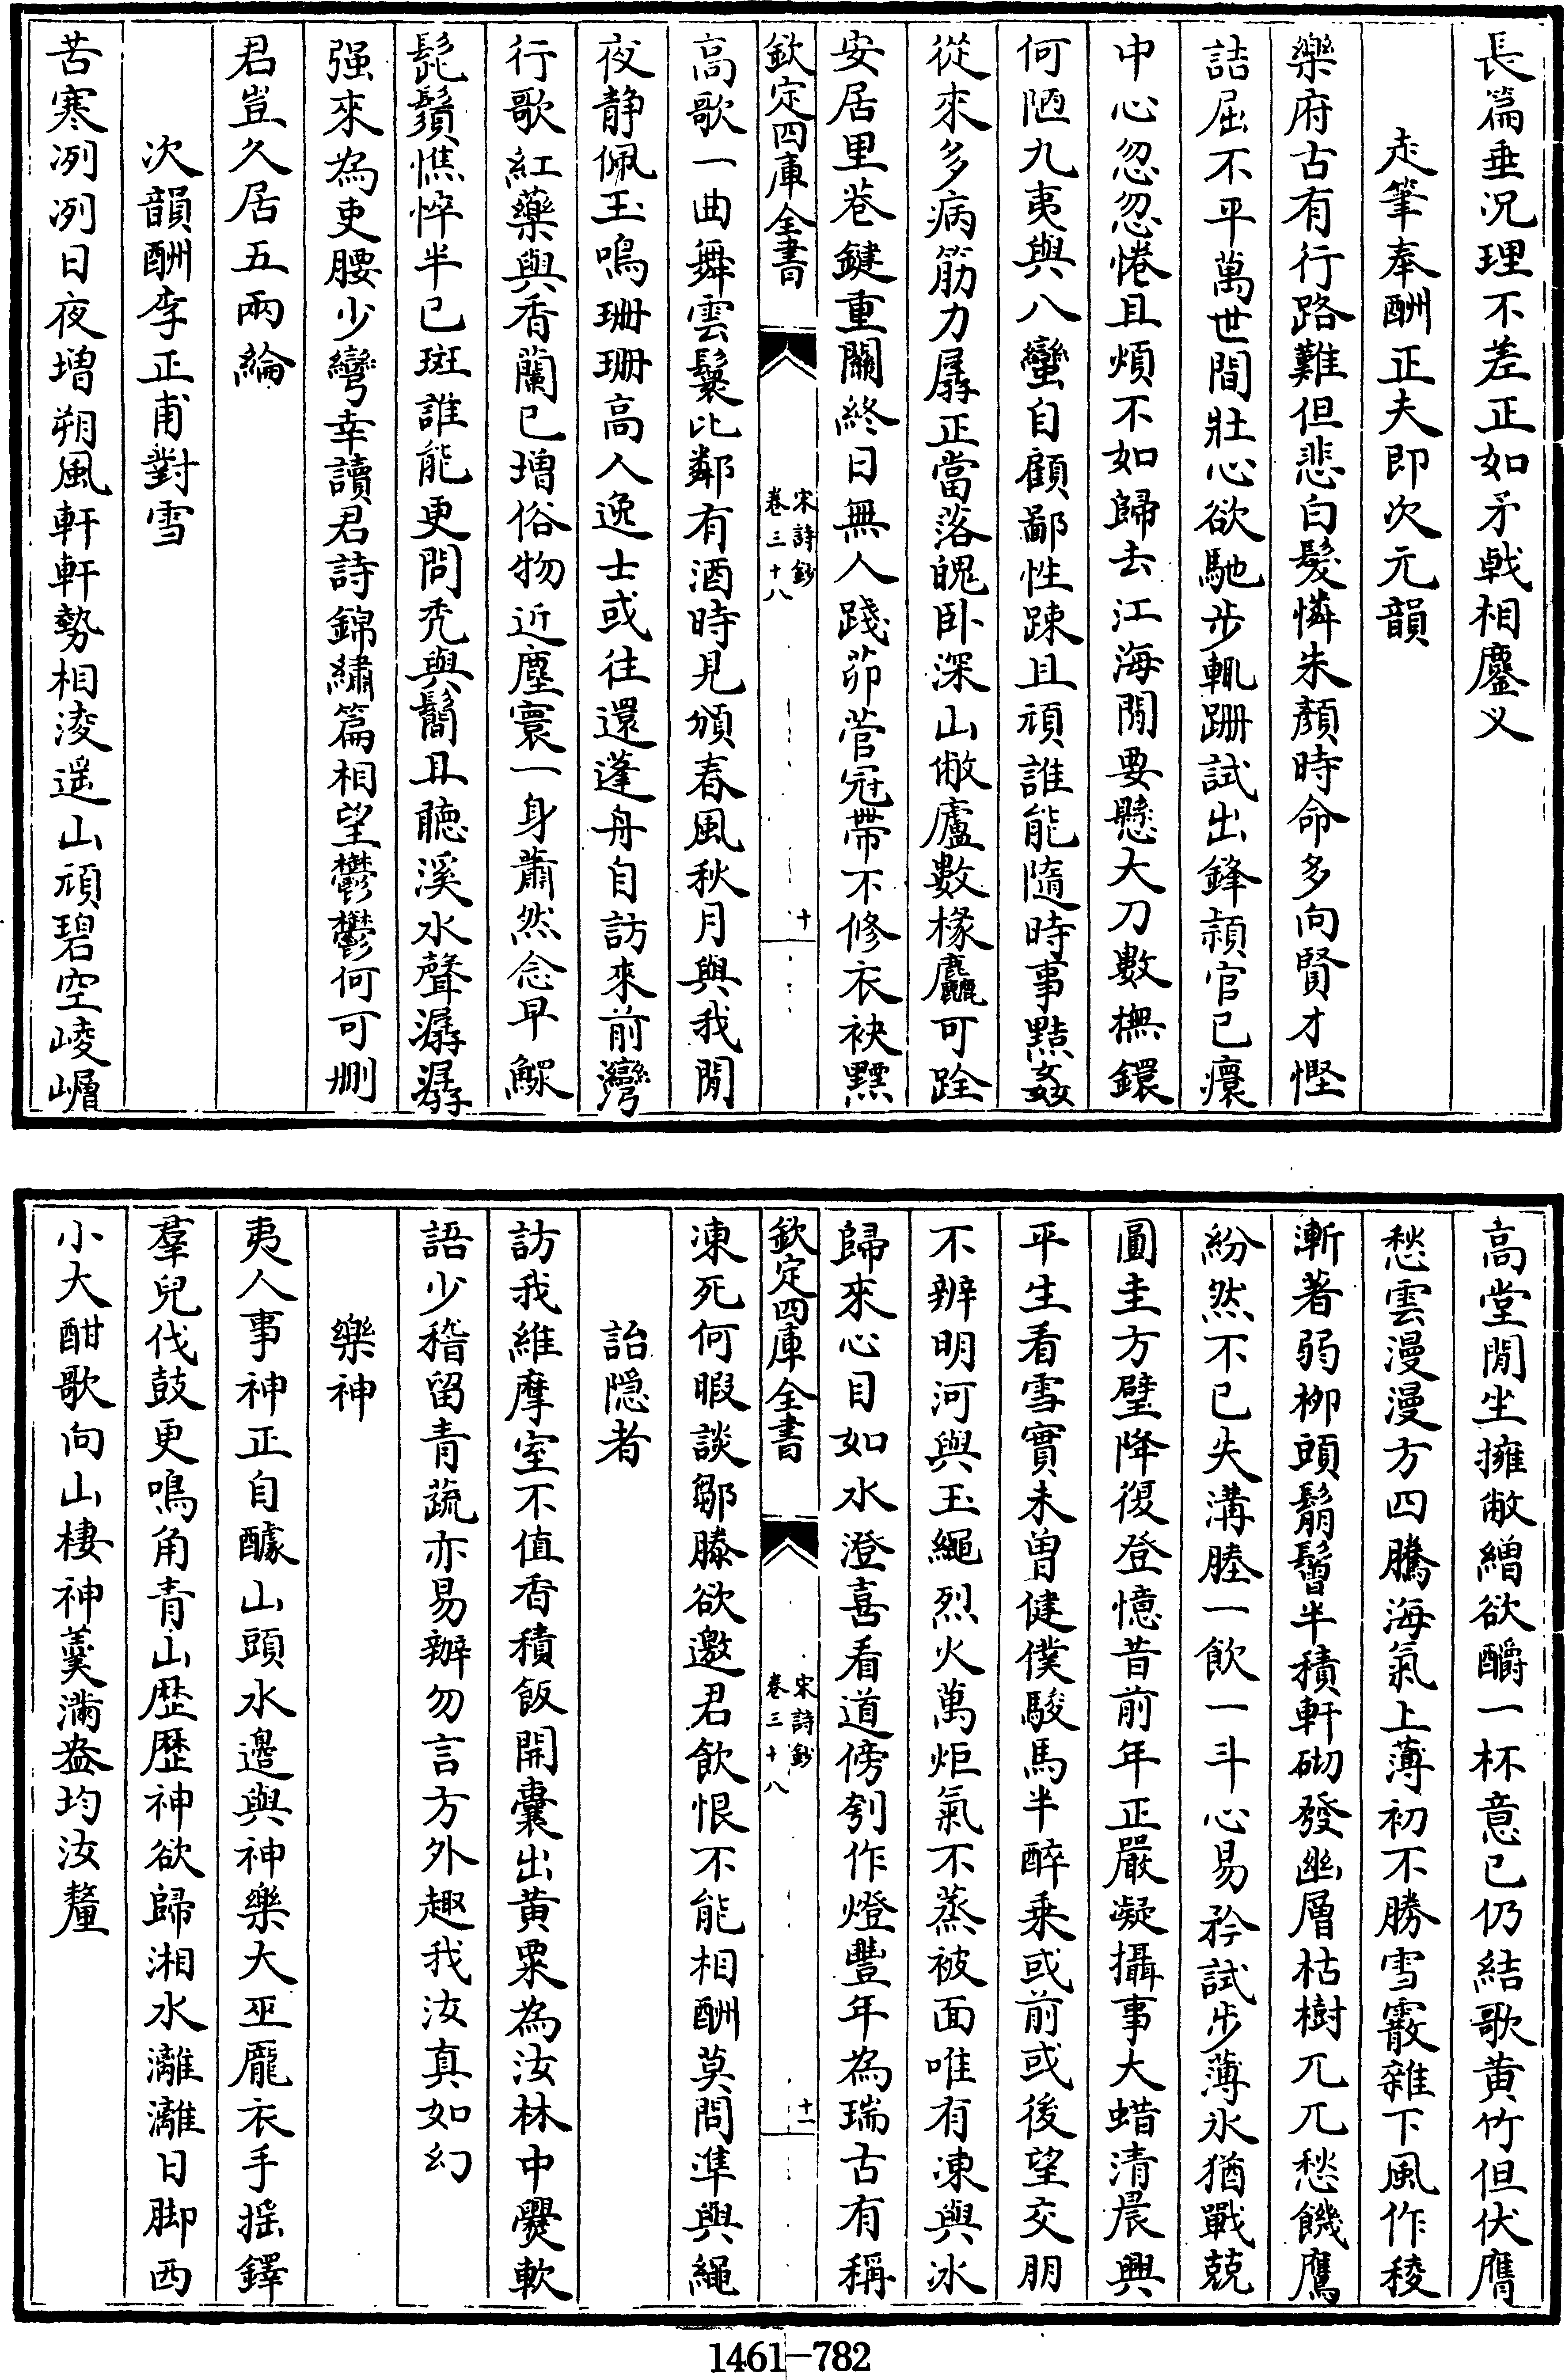 長篇垂況理不差正如矛戟相鏖义
走筆奉酬正夫即次元韻
樂府古有行路難但悲白髮憐朱顏時命多向賢才慳
詰屈不平萬世間壯心欲馳步輒跚試出鋒穎官已癏
中心忽忽惓且煩不如歸去江海閒要懸大刀數橅鐶
何陋九夷與八蠻自顧鄙性踈且頑誰能隨時事黠姦
從來多病筋力孱正當落魄卧深山僘廬數椽麤可跧
安居里巷鍵重關終日無人踐茆菅冠帶不修衣袂黰
欽定四庫全書
宋詩鈔
卷三十八
十
高歌一曲舞雲鬟比鄰有酒時見頒春風秋月與我閒
夜静佩玉鳴珊珊高人逸士或往還蓬舟自訪來前灣
行歌紅藥與香蘭已增俗物近塵寰一身肅然念早鰥
髭鬚憔悴半已斑誰能更問禿與鬝且聽溪水聲潺潺
强來為吏腰少彎幸讀君詩錦繡篇相望鬱鬱何可刪
君豈久居五兩綸
次韻酬李正甫對雪
苦寒冽冽日夜增朔風軒軒勢相淩遥山頑碧空崚嶒
高堂閒坐擁敝繒欲釂一杯意已仍結歌黄竹但伏膺
愁雲漫漫方四騰海氣上薄初不勝雪霰雜下風作稜
漸著弱柳頭鬅鬙半積軒砌發幽層枯樹兀兀愁饑鷹
紛然不已失溝塍一飲一斗心易矜試步薄氷猶戰兢
圓圭方璧降復登憶昔前年正嚴凝攝事大蜡清晨興
平生看雪實未曾健僕駿馬半醉乘或前或後望交朋
不辨明河與玉繩烈火萬炬氣不蒸被面唯有凍與冰
歸來心目如水澄喜看道傍刳作燈豐年為瑞古有稱
欽定四庫全書
宋詩鈔
卷三十八
十一
凍死何暇談鄒滕欲邀君飲恨不能相酬莫問準與繩
詒隱者
訪我維摩室不值香積飯開囊出黄粟為汝林中爨軟
語少稽留青蔬亦易辦勿言方外趣我汝真如幻
樂神
夷人事神正自醵山頭水邊與神樂大巫龎衣手摇鐸
羣兒伐鼓更鳴角青山歴歴神欲歸湘水灕灕日脚西
小大酣歌向山棲神羹滿盎均汝釐
1461—782